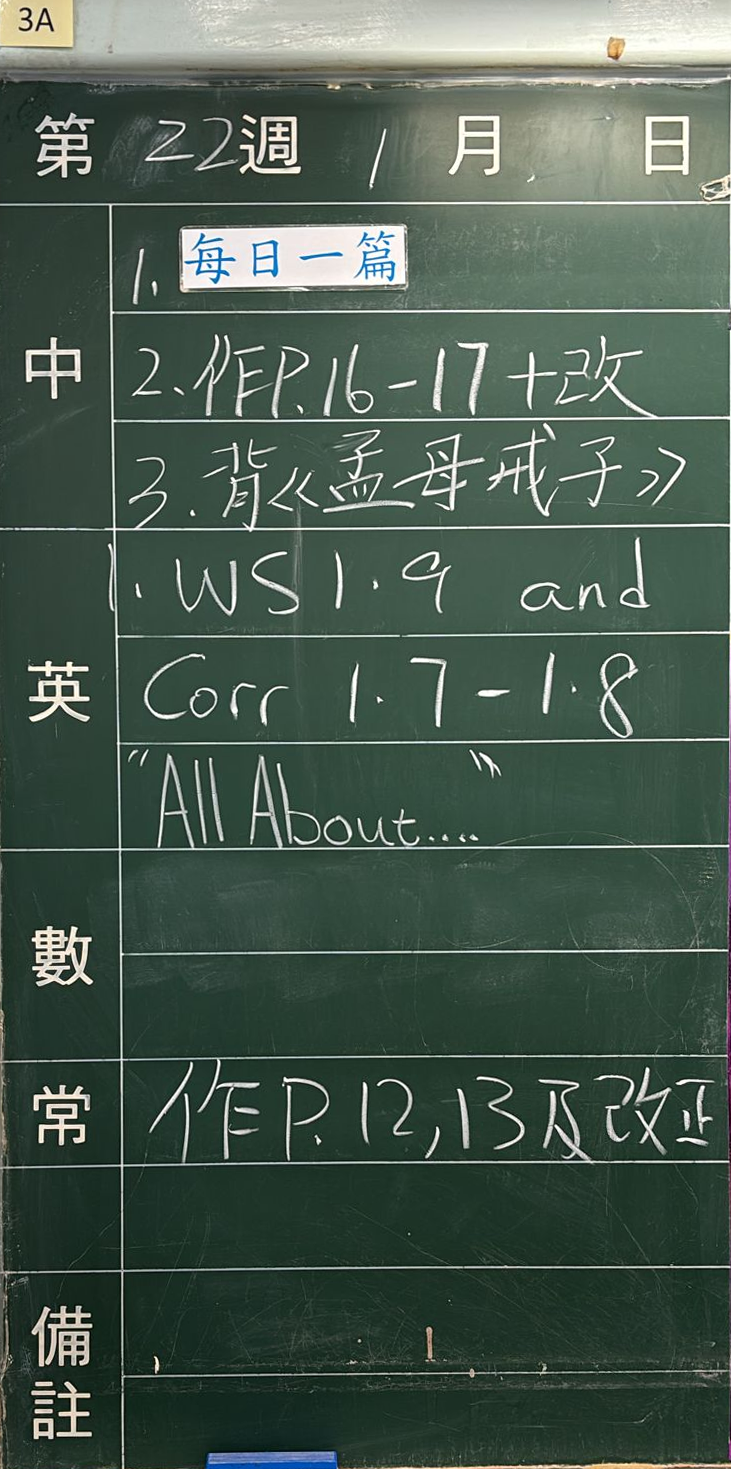 3A
第 22 週 1 月 日
中
1. 每日一篇
2. 作P.16-17+改
3. 背《孟母戒子》
英
1. WS 1.9 and
Corr 1.7-1.8
"All About...."
數
常
作P.12,13及改正
備註